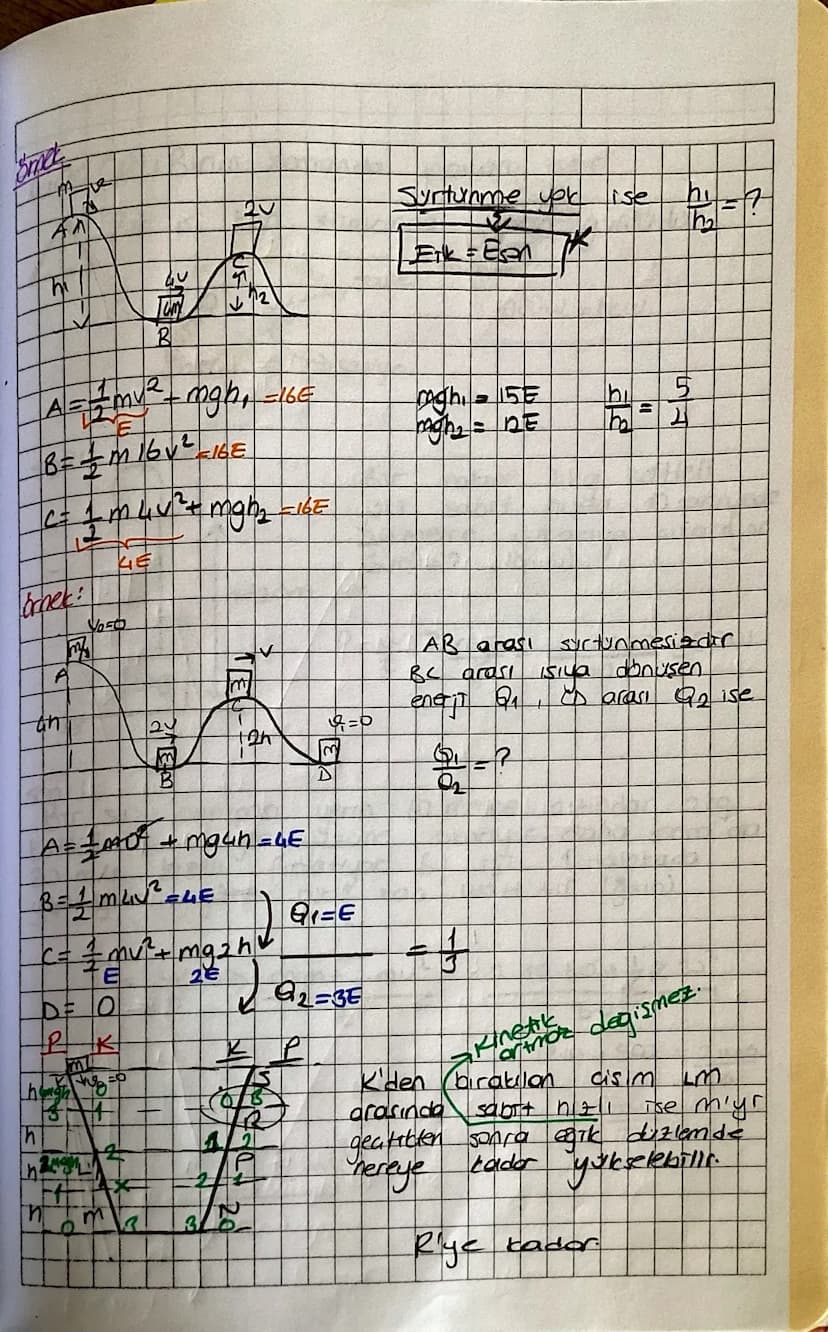 örnek
m v
A
h1
4v
4m
B
2v
C
h2
Sürtünme yok ise h1/h2 = ?
Eilk = Eson
A = 1/2 mv² + mgh1 = 16E
E
B = 1/2 m 16v² = 16E
C = 1/2 m 4v² + mgh2 = 16E
4E
mgh1 = 15E
mgh2 = 12E
h1/h2 = 5/4
örnek:
V0=0
A
4h
2v
m
B
v
m
C
2h
v1=0
m
D
AB arası sürtünmesizdir
BC arası ısıya dönüşen
enerji Q1, CD arası Q2 ise
Q1/Q2 = ?
A = 1/2 m0² + mg4h = 4E
B = 1/2 m4v² = 4E
C = 1/2 mv² + mg2h
E 2E
D = 0
Q1 = E
Q2 = 3E
= 1/3
P K
K P
m
K v0=0
h
h
h
h
m
S
R
P
N
Kinetik
artmaz değişmez.
K'den bırakılan cisim LM
arasında sabit hızlı ise M'yi
geçtikten sonra eğik düzlemde
nereye kadar yükselebilir.
R'ye kadar.